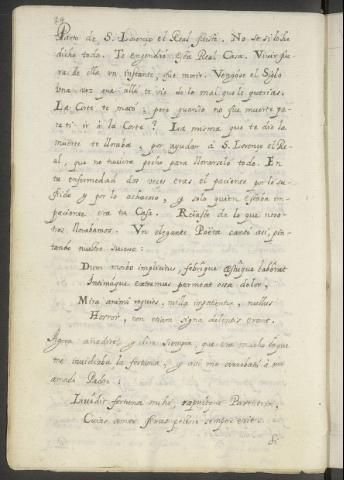 24
Parto de S. Lorenzo el Real fuiste. No se si lo he
dicho todo. Te engendró esta Real Casa. Vivir fue
ra de ella un instante, fue morir. Vengóse el Siglo
una vez que allá te vio de lo mal que le querias.
La Corte te mató; pero quando no fue muerte pa-
ra ti ir à la Corte? La misma que te dio la
muerte te lloraba, por ayudar à S. Lorenzo el Re
al, que no tuviera pecho para llorarselo todo. En
tu enfermedad dos veces eras el paciente por lo su-
frido y por lo achacoso, y solo quien estaba im-
paciente era tu Casa. Reiaste de lo que noso-
tros llorabamos. Un elegante Poëta cantó asi, pin-
tando nuestro suceso:
Dum morbo implicitus, febrique æstuque laborat
Intimaque extremus permeat ossa dolor,
Mira animi requies, nulla impatientia, nullus
Horror, non etiam signa dolentis erant.
Agora añadirè, y dire siempre, que era mucho lo que
me invidiaba la fortuna, y asi me arrebató à mi
amado Padre:
Invidit fortuna mihi, rapuitque Parentem,
Cuius amor semper erit.